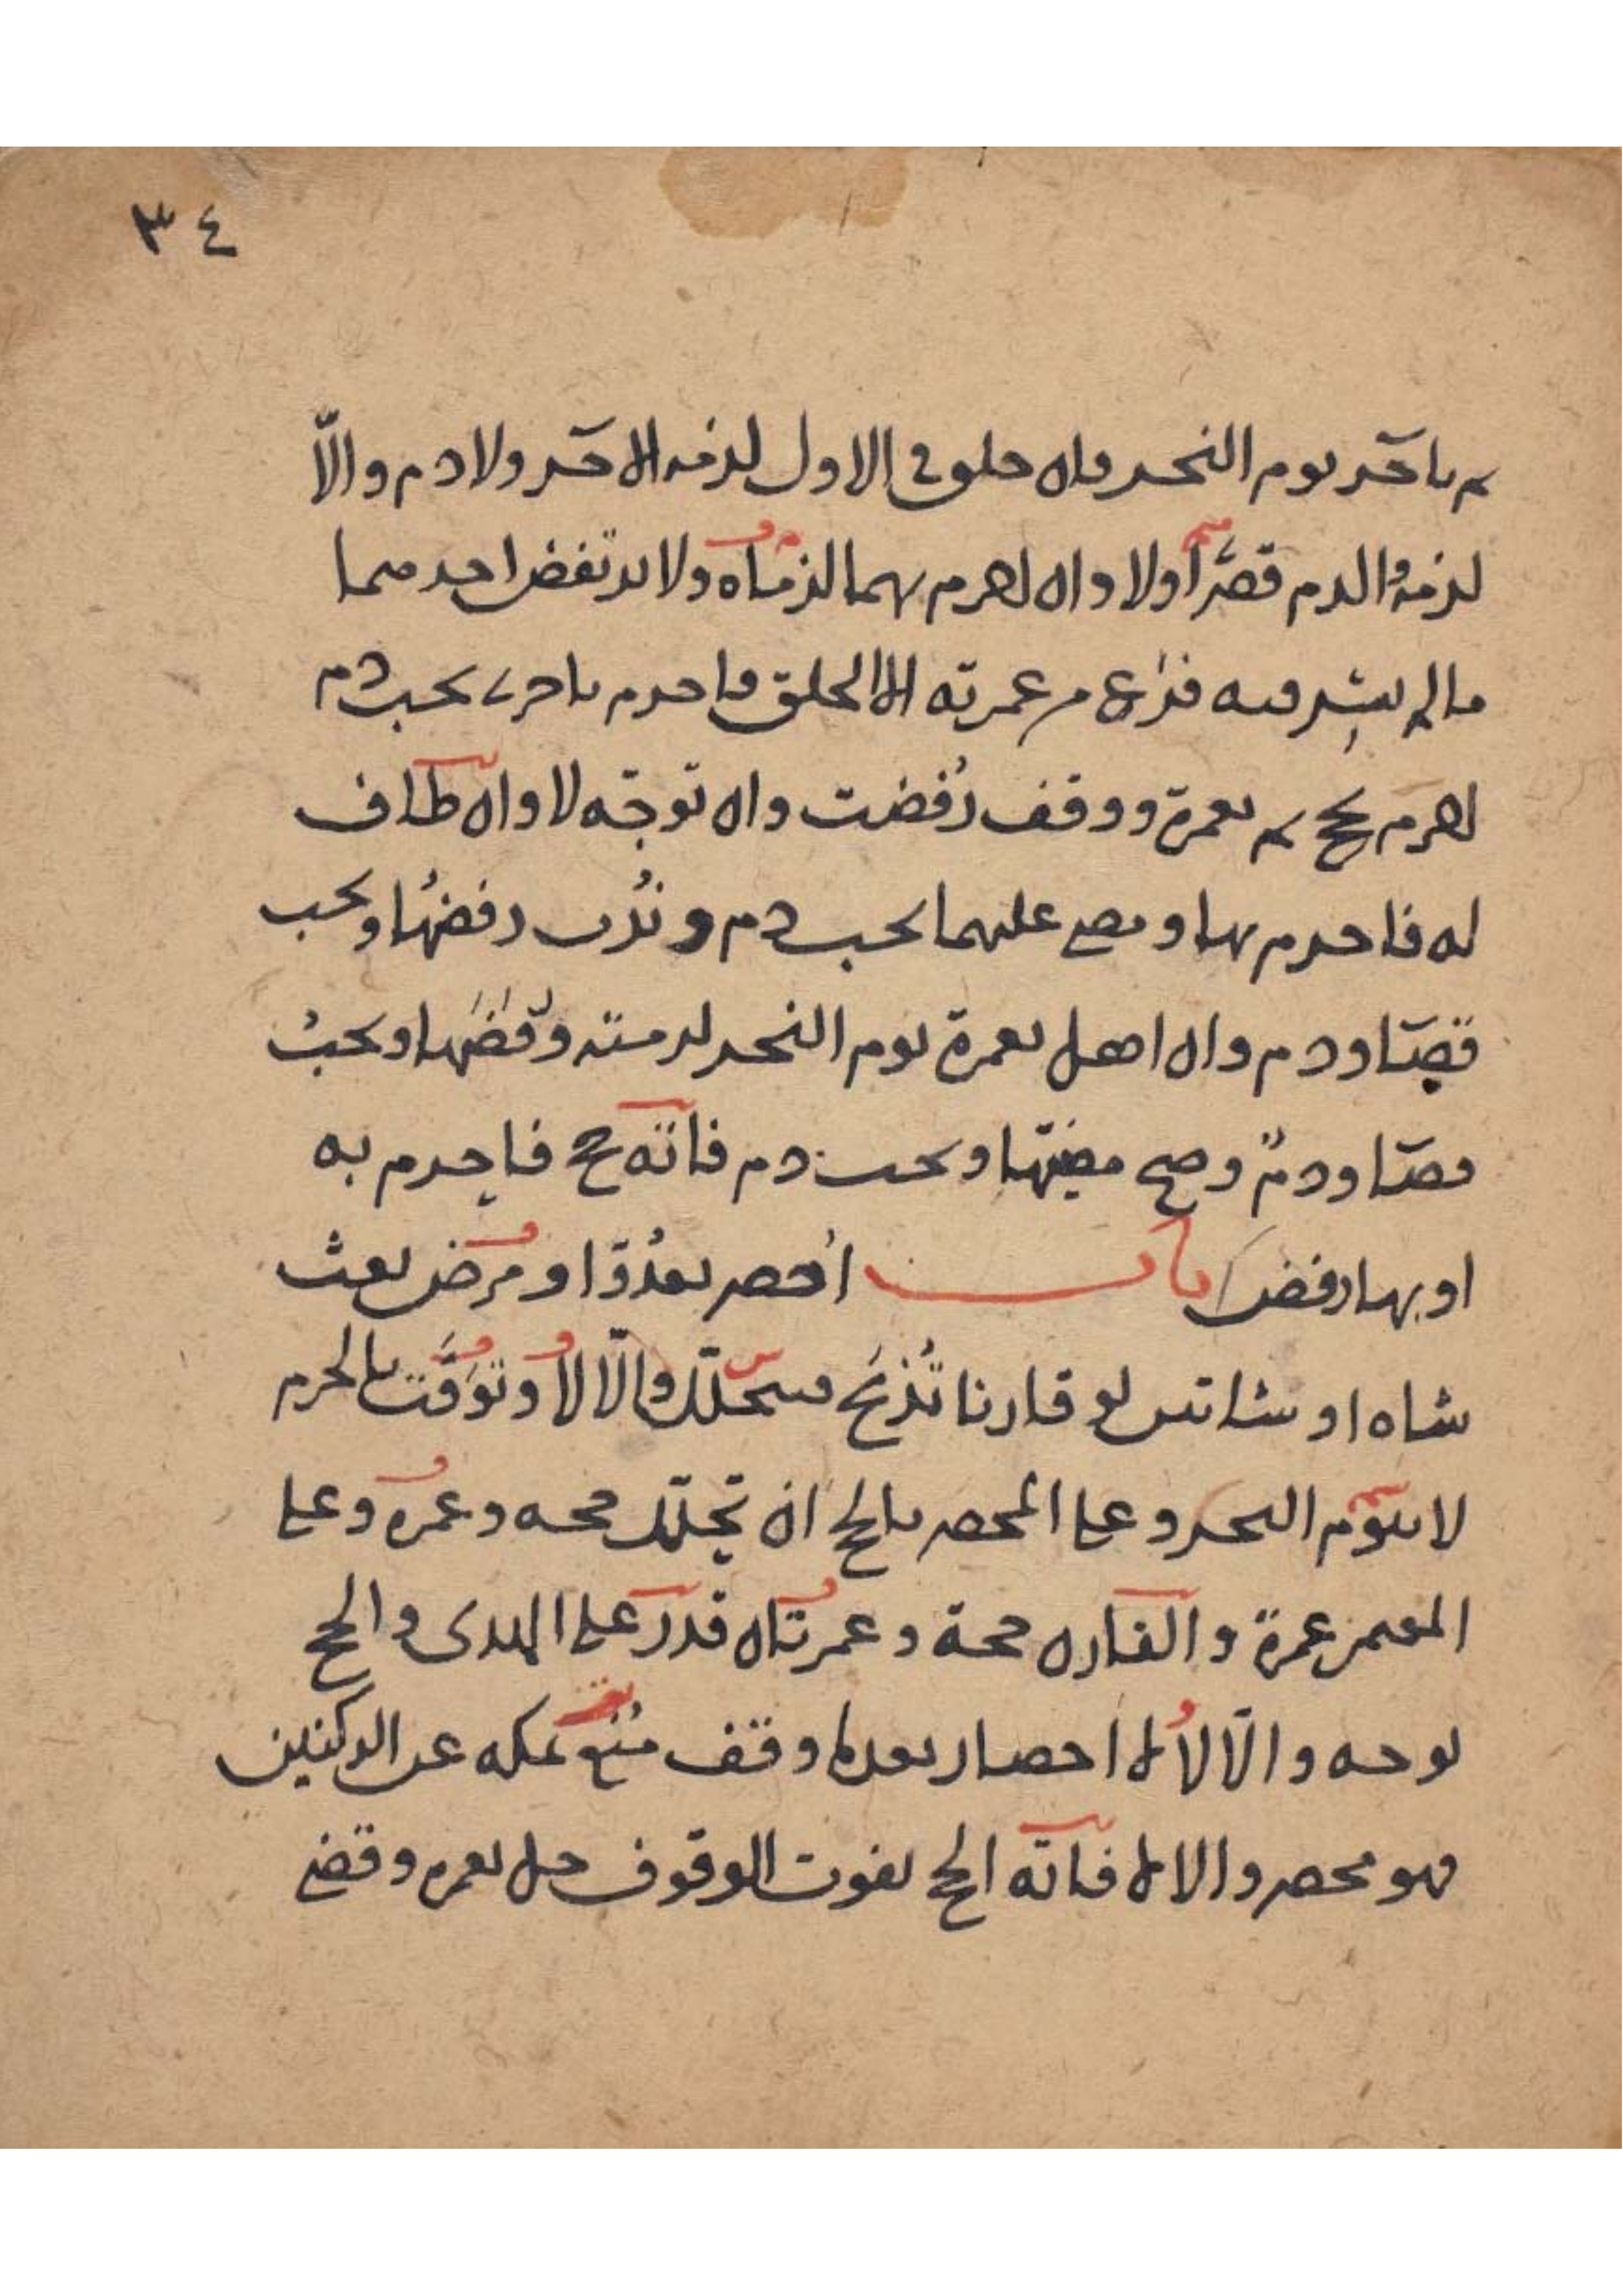 ٣٤
ثم باخر يوم النحر فان حلق في الاول لزمه الاخر ولا دم والّا
لزمه والدم قصّر اولا وان احرم بهما لزماه ولا يرتفض احدهما
ما لم يشرفيه فرغ من عمرته الا الحلق فاحرم باخرى يجب دم
احرم بحج ثم بعمرة ووقف رُفضت وان توجّه لا وان طاف
له فاحرم بها ومضى عليهما يجب دم ونُدب رفضُها ويجب
قضا ودم وان اهل بعمرة يوم النحر لزمته ورفضها ويجبُ
قضا ودمٌ وصح مضيّها ويجب دم فاته حج فاحرم به
او بها رفض باب اُحصر بعدُوّ او مرض بعث
شاه او شاتين لو قارنا تُذبَح فيتحلّل والّا لا لا وتوَقَّت بالحرم
لا بيوم النحر وعلى المحصر بالحج ان تحلّل حجه وعمره وعلى
المعتمر عمرة والقارن حجة وعمرتان قدر على الهدى والحج
توجه والّا لا لا احصار بعد ما وقف مُنع بمكه عن الركنين
فهو محصر والا لا فاته الحج بفوت الوقوف حل بعمره وقضى